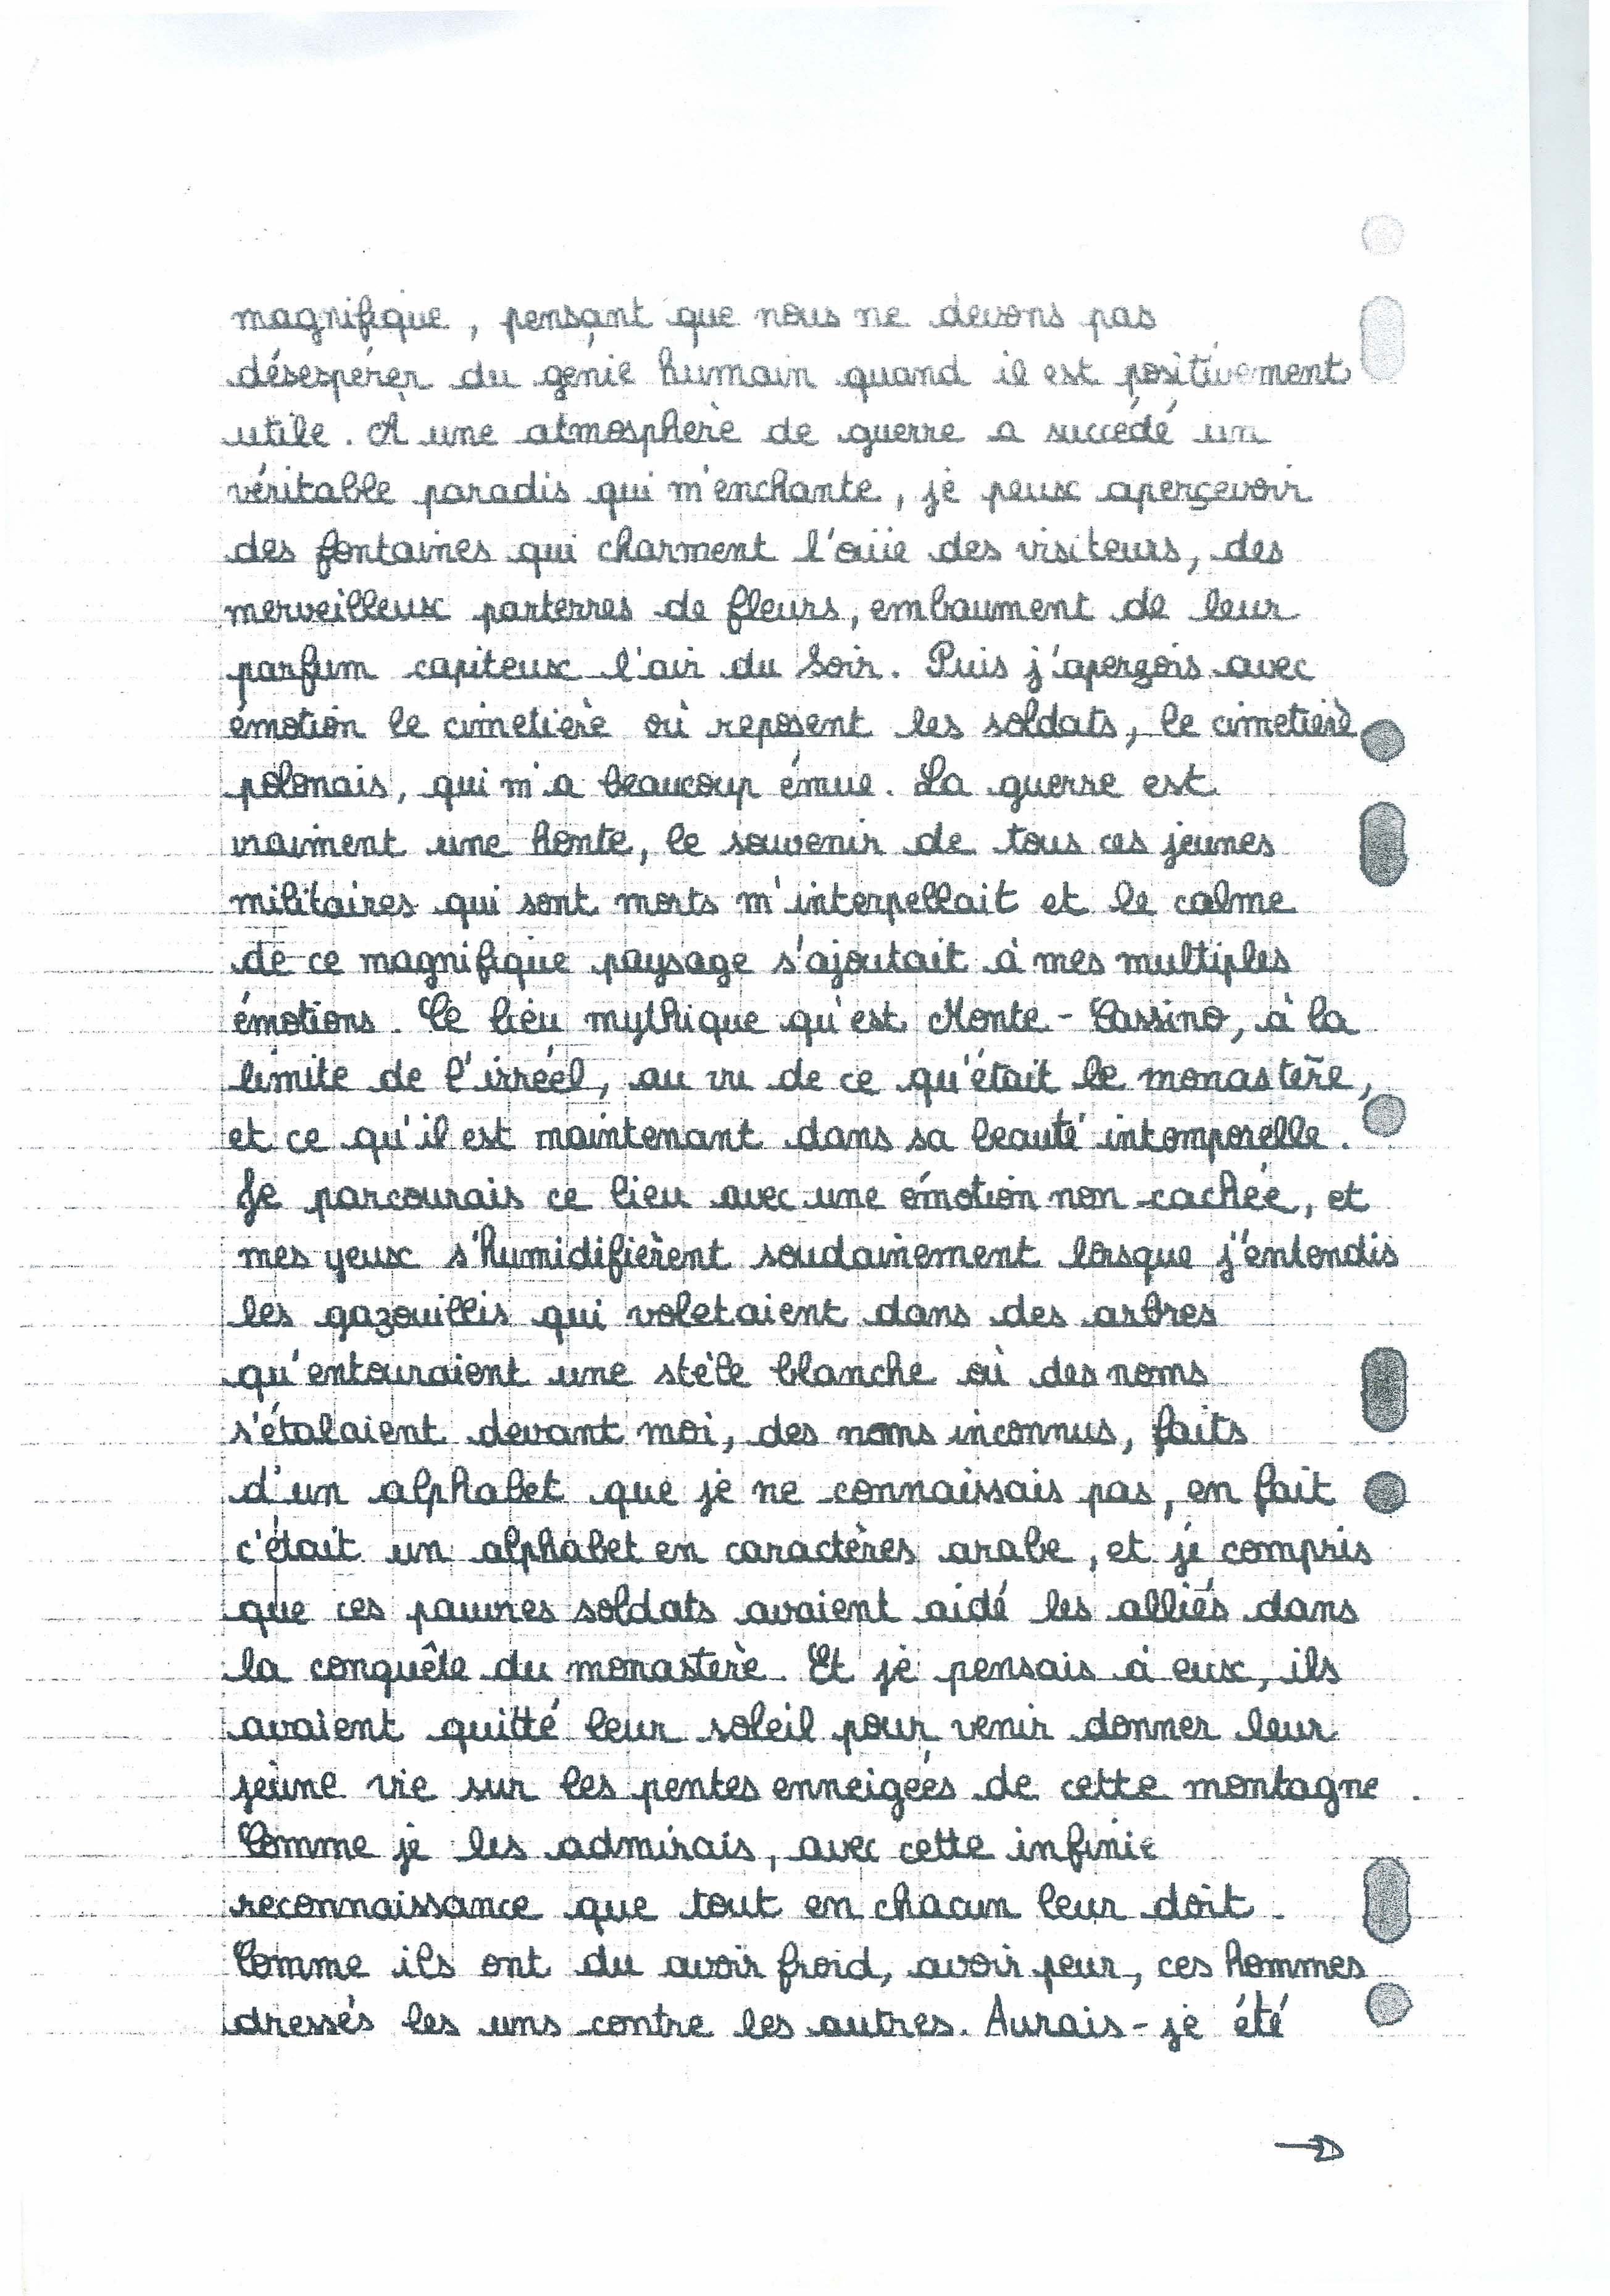 magnifique, pensant que nous ne devons pas
désespérer du génie humain quand il est positivement
utile. A une atmosphère de guerre a succédé un
véritable paradis qui m'enchante, je peux aperçevoir
des fontaines qui charment l'ouïe des visiteurs, des
merveilleux parterres de fleurs, embaument de leur
parfum capiteux l'air du Soir. Puis j'aperçois avec
émotion le cimetière où reposent les soldats, le cimetière
polonais, qui m'a beaucoup émue. La guerre est
vraiment une honte, le souvenir de tous ces jeunes
militaires qui sont morts m'interpellait et le calme
de ce magnifique paysage s'ajoutait à mes multiples
émotions. Ce lieu mythique qu'est Monte-Cassino, à la
limite de l'irréel, au vu de ce qu'était le monastère,
et ce qu'il est maintenant dans sa beauté intomporelle.
Je parcourais ce lieu avec une émotion non cachée, et
mes yeux s'humidifièrent soudainement lorsque j'entendis
les gazouillis qui voletaient dans des arbres
qu'entouraient une stèle blanche où des noms
s'étalaient devant moi, des noms inconnus, faits
d'un alphabet que je ne connaissais pas, en fait
c'était un alphabet en caractères arabe, et je compris
que ces pauvres soldats avaient aidé les alliés dans
la conquête du monastère. Et je pensais à eux, ils
avaient quitté leur soleil pour venir donner leur
jeune vie sur les pentes enneigées de cette montagne.
Comme je les admirais, avec cette infinie
reconnaissance que tout en chacun leur doit.
Comme ils ont du avoir froid, avoir peur, ces hommes
dressés les uns contre les autres. Aurais-je été